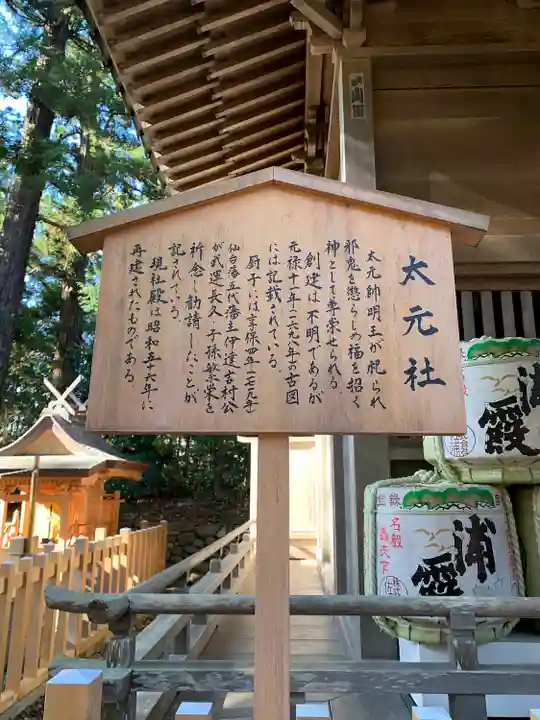 太元社
太元帥明王が祀られ
邪鬼を懲らしめ福を招く
神として尊崇せられる。
創建は不明であるが
元禄十一年(一六九八年)の古図
には記載されている。
厨子には享保四年(一七一九年)
仙台藩五代藩主伊達吉村公
が武運長久、子孫繁栄を
祈念し勧請したことが
記されている。
現社殿は昭和五十六年に
再建されたものである。
浦霞
名醸
浦霞